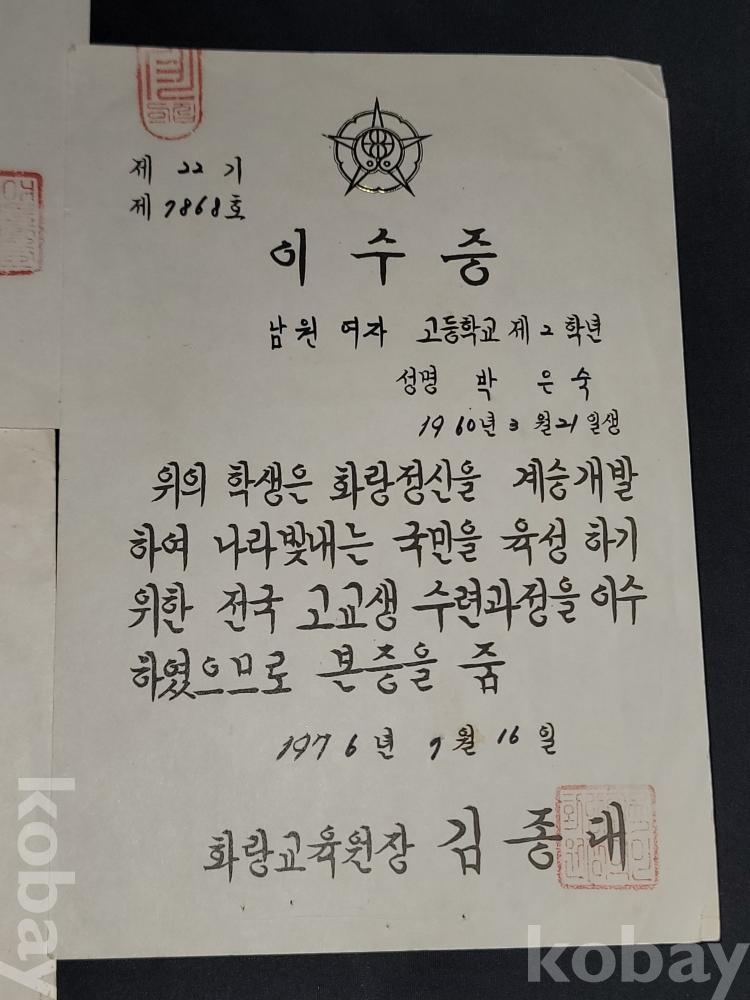 제 22 기
제 7868 호
이 수 증
남원 여자 고등학교 제 2 학년
성명 박 은 숙
1960년 3 월 21 일생
위의 학생은 화랑정신을 계승개발
하여 나라빛내는 국민을 육성 하기
위한 전국 고교생 수련과정을 이수
하였으므로 본증을 줌
1976년 7월 16일
화랑교육원장 김 종 대
kobay
kobay